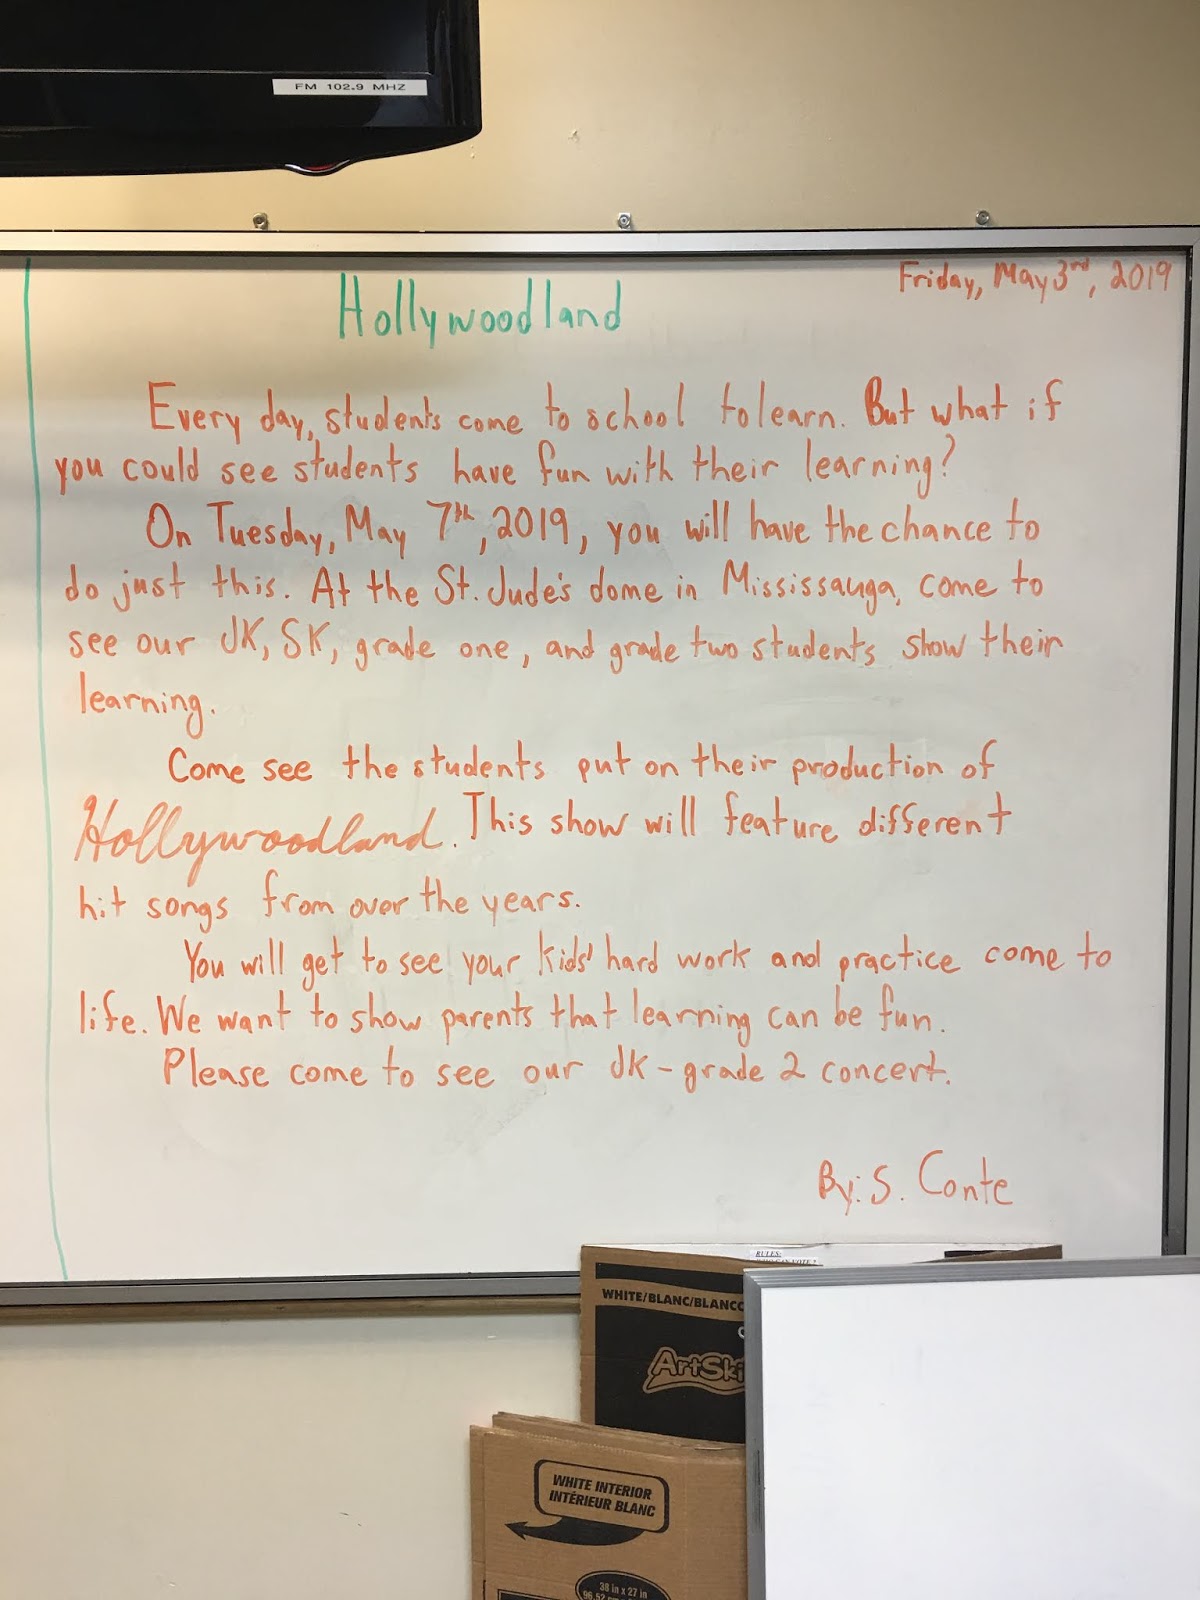 FM 102.9 MHZ
Friday, May 3rd, 2019
Hollywoodland
Every day, students come to school to learn. But what if
you could see students have fun with their learning?
On Tuesday, May 7th, 2019, you will have the chance to
do just this. At the St. Jude's dome in Mississauga, come to
see our JK, SK, grade one, and grade two students show their
learning.
Come see the students put on their production of
Hollywoodland. This show will feature different
hit songs from over the years.
You will get to see your kids' hard work and practice come to
life. We want to show parents that learning can be fun.
Please come to see our JK - grade 2 concert.
By: S. Conte
RULES:
WHITE/BLANC/BLANCO
ArtSki
WHITE INTERIOR
INTÉRIEUR BLANC
36 in x 27 in